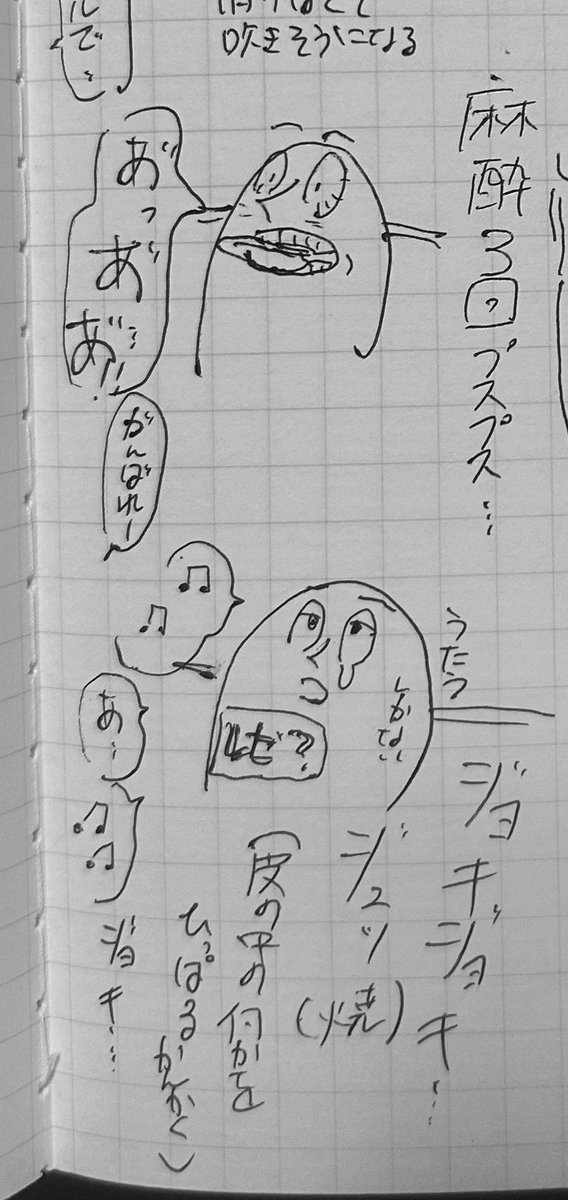 ルで…
吹きそうになる
麻酔3回。プスプス…
あ゛っあ゛あ゛…!!
がんばれー
うたう
しかない
♫
♫
なぜ?
あ…
♫
♫
ジョキジョキ…
ジュッ(焼き)
(皮の中の何かを
ひっぱるかんかく)
ジョキ…